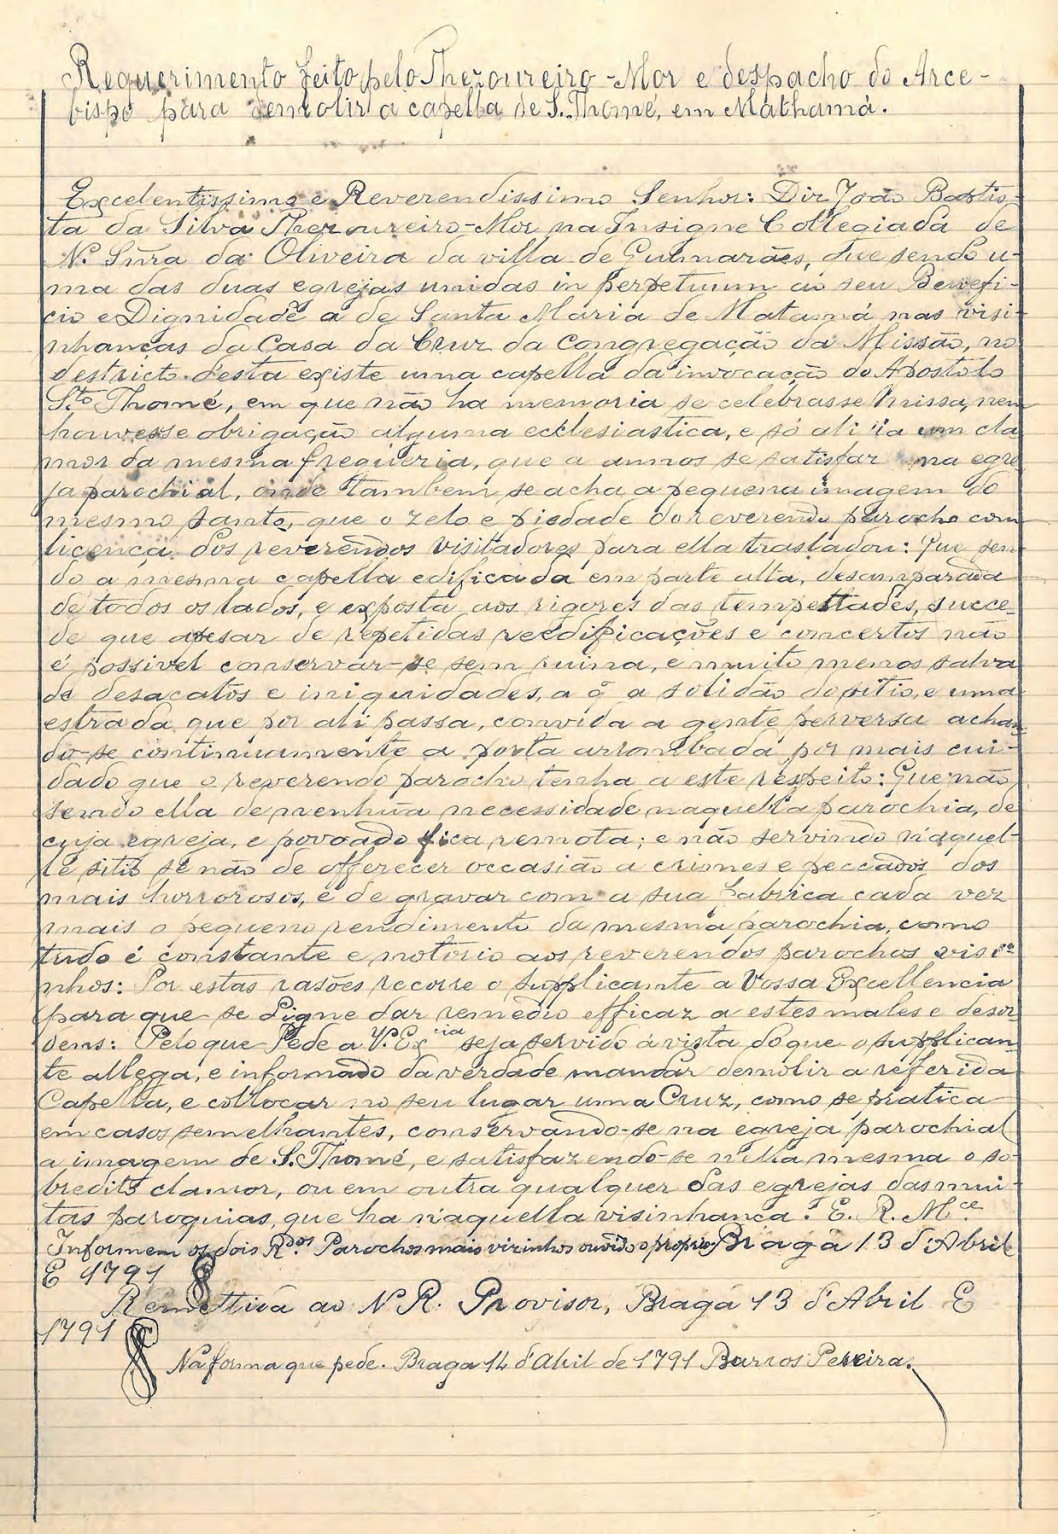 Requerimento feito pelo Thezoureiro-Mor e despacho do Arce-
bispo para demolir a capella de S. Thomé, em Mathamá.
Excelentissimo e Reverendissimo Senhor: Diz João Baptis-
ta da Silva Thezoureiro-Mor na Insigne Collegiada de
N. Snra da Oliveira da villa de Guimarães, que sendo u-
ma das duas egrejas unidas in perpetuum ao seu Benefi-
cio e Dignidade a de Santa Maria de Matamá nas visi-
nhanças da Casa da Cruz da Congregação da Missão, no
destricto d'esta existe uma capella da invocação do Apostolo
S.to Thomé, em que não ha memoria se celebrasse Missa, nem
houvesse obrigação alguma ecclesiastica, e só ali ia um cla
mor da mesma freguezia, que a annos se satisfaz na egre
ja parochial, onde tambem se acha a pequena imagem do
mesmo santo, que o zelo e piedade do reverendo parocho com
licença dos reverendos visitadores para ella trasladou: Que sen-
do a mesma capella edificada em parte alta, desamparada
de todos os lados, e exposta aos rigores das tempestades, succe-
de que apesar de repetidas reedificações e concertos não
é possivel conservar-se sem ruina, e muito menos salva
de desacatos e iniquidades, a q̃ a solidão do sitio, e uma
estrada que por ali passa, convida a gente perversa achan-
do-se continuamente a porta arrombada por mais cui-
dado que o reverendo parocho tenha a este respeito: Que não
sendo ella de nenhũa necessidade naquella parochia, de
cuja egreja, e povoado fica remota; e não servindo n'aquel-
le sitio se não de offerecer occasião a crimes e peccados dos
mais horrorosos, e de gravar com a sua fabrica cada vez
mais o pequeno rendimento da mesma parochia, como
tudo é constante e notorio aos reverendos parochos visi-
nhos: Por estas rasões recorre o supplicante a Vossa Excellencia
para que se Digne dar remedio efficaz a estes males e desor
dens: Pelo que Pede a V. Ex.cia seja servido á vista do que o supplican-
te allega, e informado da verdade mandar demolir a referida
Capella, e collocar no seu lugar uma Cruz, como se pratica
em casos semelhantes, conservando-se na egreja parochial
a imagem de S. Thomé, e satisfazendo-se n'ella mesma o so-
bredito clamor, ou em outra qualquer das egrejas das mui-
tas paroquias, que ha n'aquella visinhança: E. R. M.ce
Informem os dois R.dos Parochos mais vizinhos ouvido o proprio Braga 13 d'Abril
E 1791
Remettida ao N R. Provisor, Braga 13 d'Abril E
1791
Na forma que pede. Braga 14 d'Abril de 1791 Barros Pereira.